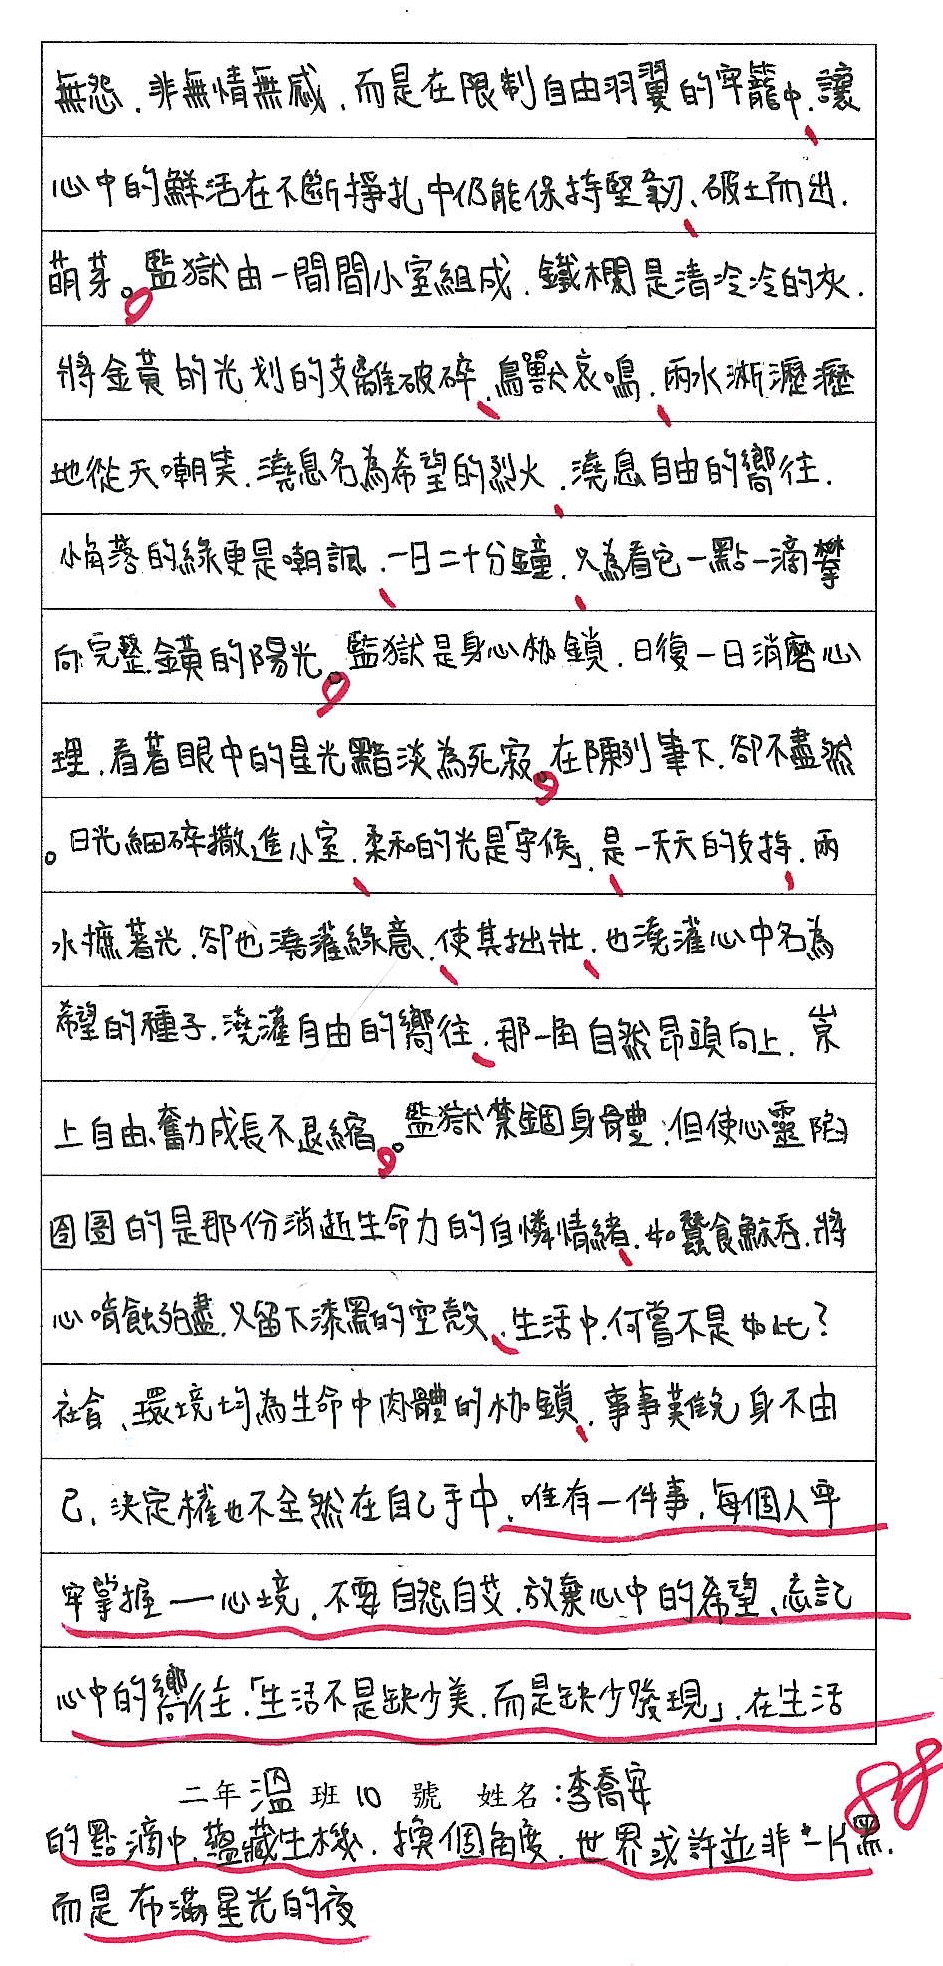 無怨,非無情無感,而是在限制自由羽翼的牢籠中,讓
心中的鮮活在不斷掙扎中仍能保持堅韌、破土而出,
萌芽。監獄由一間間小室組成,鐵欄是清冷冷的灰,
將金黃的光划的支離破碎,鳥獸哀鳴,雨水淅瀝瀝
地從天嘲笑,澆息名為希望的烈火,澆息自由的嚮往,
小角落的綠更是嘲諷,一日二十分鐘,只為看它一點一滴攀
向完整金黃的陽光。監獄是身心枷鎖,日復一日消磨心
理,看著眼中的星光黯淡為死寂。在陳列筆下,卻不盡然
。日光細碎撒進小室,柔和的光是「守候」,是一天天的支持,雨
水摭著光,卻也澆灌綠意,使其拙壯,也澆灌心中名為
希望的種子,澆灌自由的嚮往,那一角自然昂頭向上,崇
上自由、奮力成長不退縮。監獄禁錮身體;但使心靈陷
囹圄的是那份消逝生命力的自憐情緒,如蠶食鯨吞,將
心啃蝕殆盡,只留下漆黑的空殼,生活中,何嘗不是如此?
社會、環境均為生命中肉體的枷鎖,事事難免身不由
己,決定權也不全然在自己手中,唯有一件事,每個人牢
牢掌握——心境,不要自怨自艾,放棄心中的希望,忘記
心中的嚮往,「生活不是缺少美,而是缺少發現」,在生活
二年溫班10號 姓名:李喬安
88
的點滴中,蘊藏生機,換個角度,世界或許並非一片黑,
而是布滿星光的夜